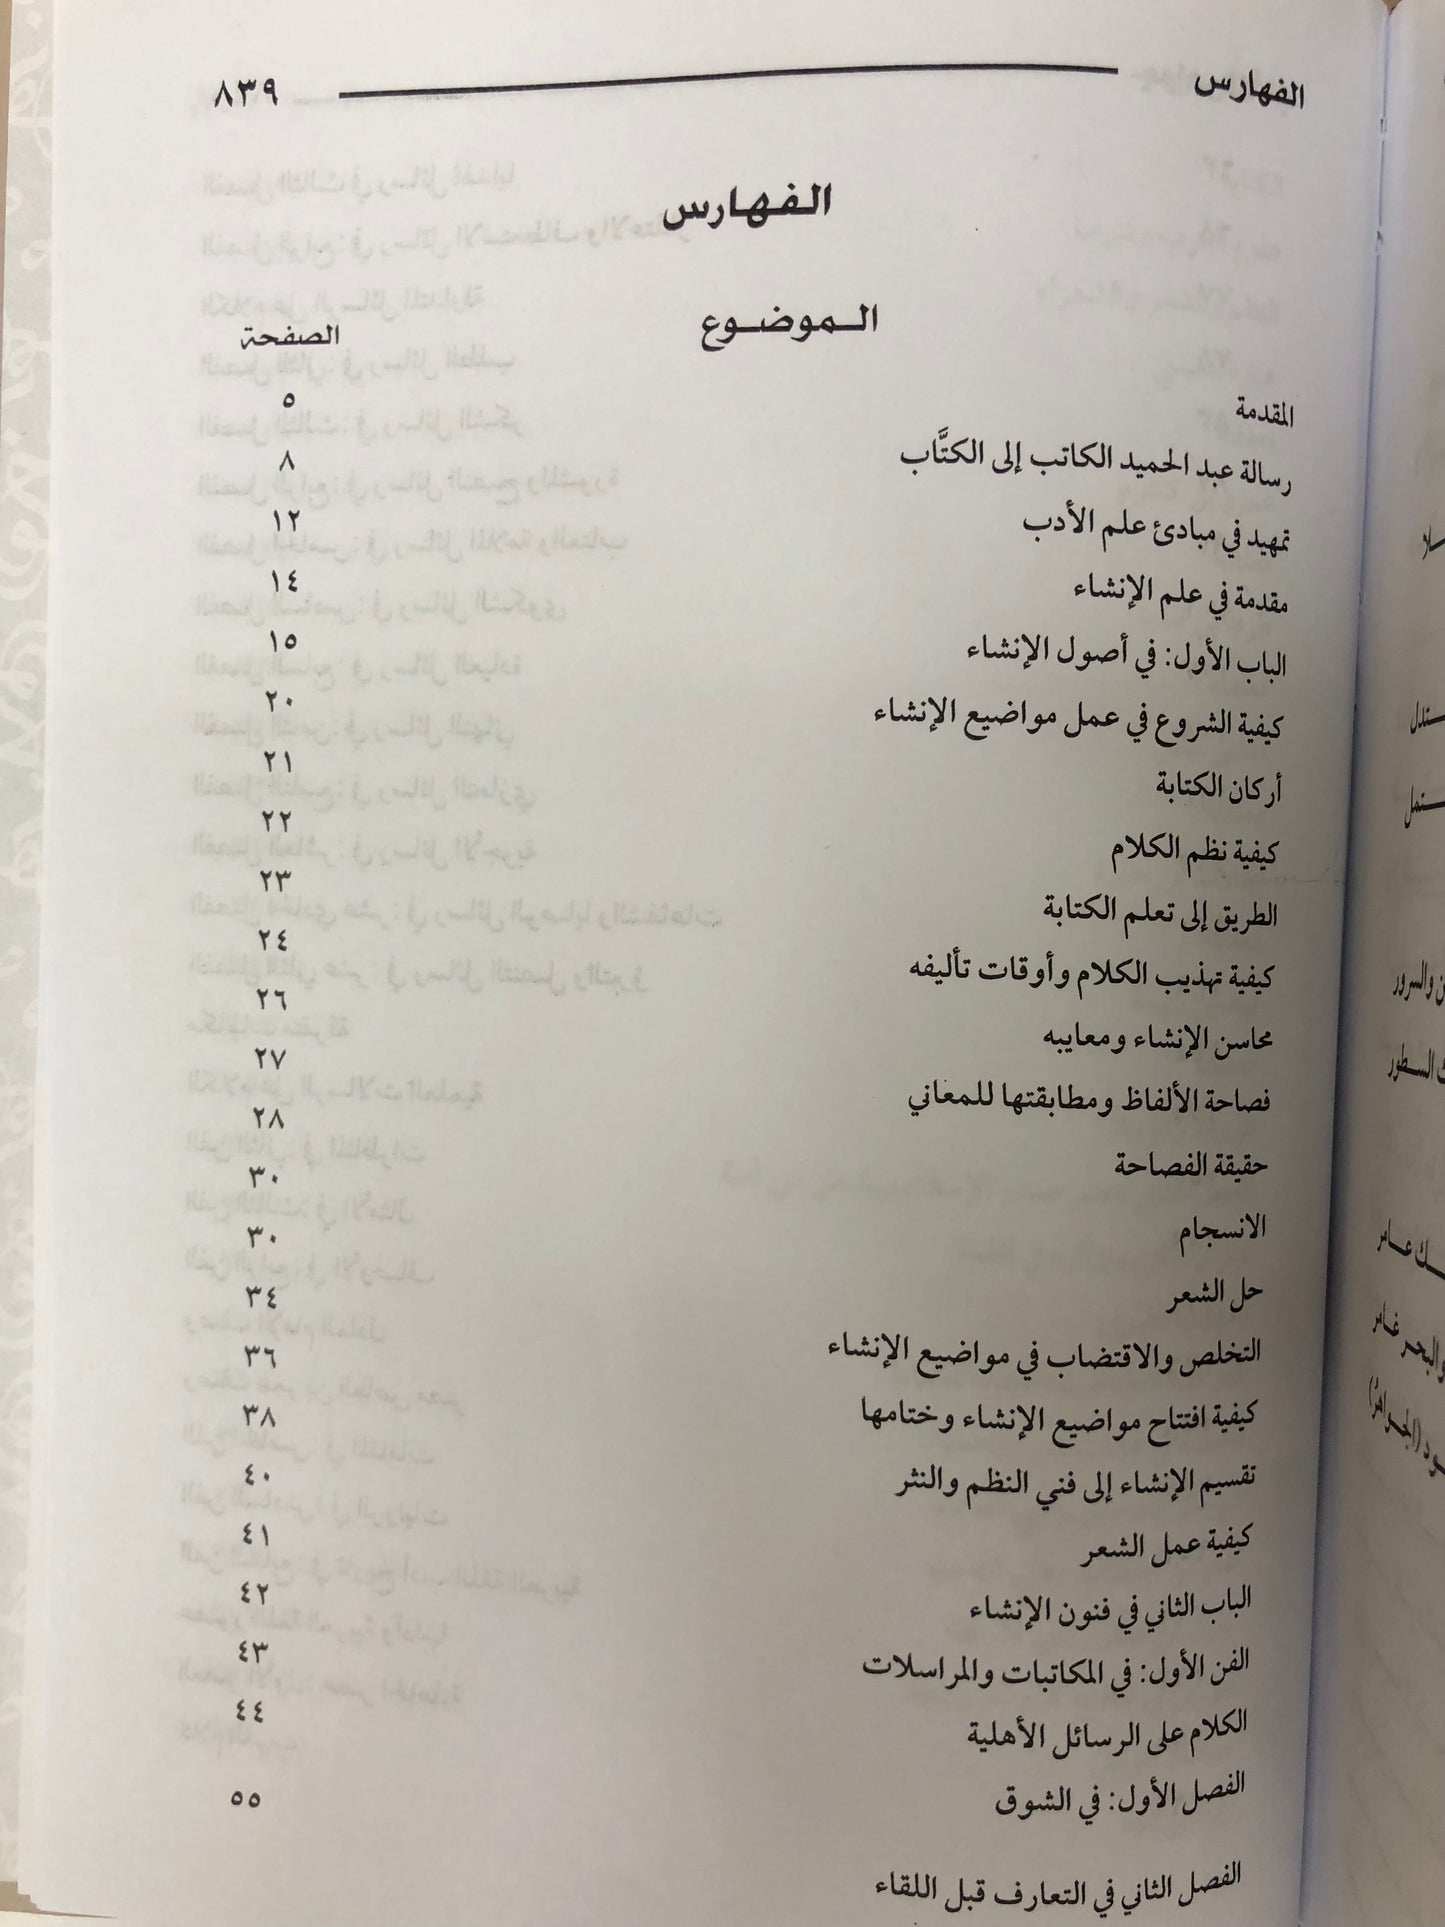 الفهارس ٨٣٩
الفهارس
الموضوع الصفحة
المقدمة ٥
رسالة عبد الحميد الكاتب إلى الكتَّاب ٨
تمهيد في مبادئ علم الأدب ١٢
مقدمة في علم الإنشاء ١٤
الباب الأول: في أصول الإنشاء ١٥
كيفية الشروع في عمل مواضيع الإنشاء ٢٠
أركان الكتابة ٢١
كيفية نظم الكلام ٢٢
الطريق إلى تعلم الكتابة ٢٣
كيفية تهذيب الكلام وأوقات تأليفه ٢٤
محاسن الإنشاء ومعايبه ٢٦
فصاحة الألفاظ ومطابقتها للمعاني ٢٧
حقيقة الفصاحة ٢٨
الانسجام ٣٠
حل الشعر ٣٠
التخلص والاقتضاب في مواضيع الإنشاء ٣٤
كيفية افتتاح مواضيع الإنشاء وختامها ٣٦
تقسيم الإنشاء إلى فني النظم والنثر ٣٨
كيفية عمل الشعر ٤٠
الباب الثاني في فنون الإنشاء ٤١
الفن الأول: في المكاتبات والمراسلات ٤٢
الكلام على الرسائل الأهلية ٤٣
الفصل الأول: في الشوق ٤٤
الفصل الثاني في التعارف قبل اللقاء ٥٥
والسرور
السطور